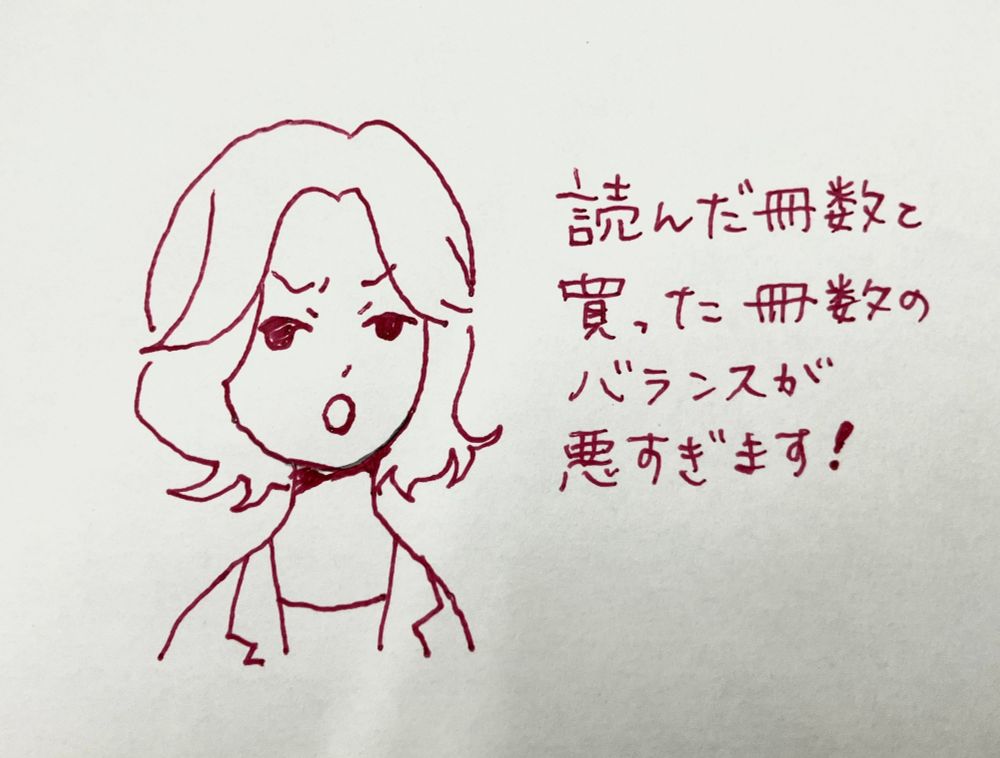 読んだ冊数と
買った冊数の
バランスが
悪すぎます!